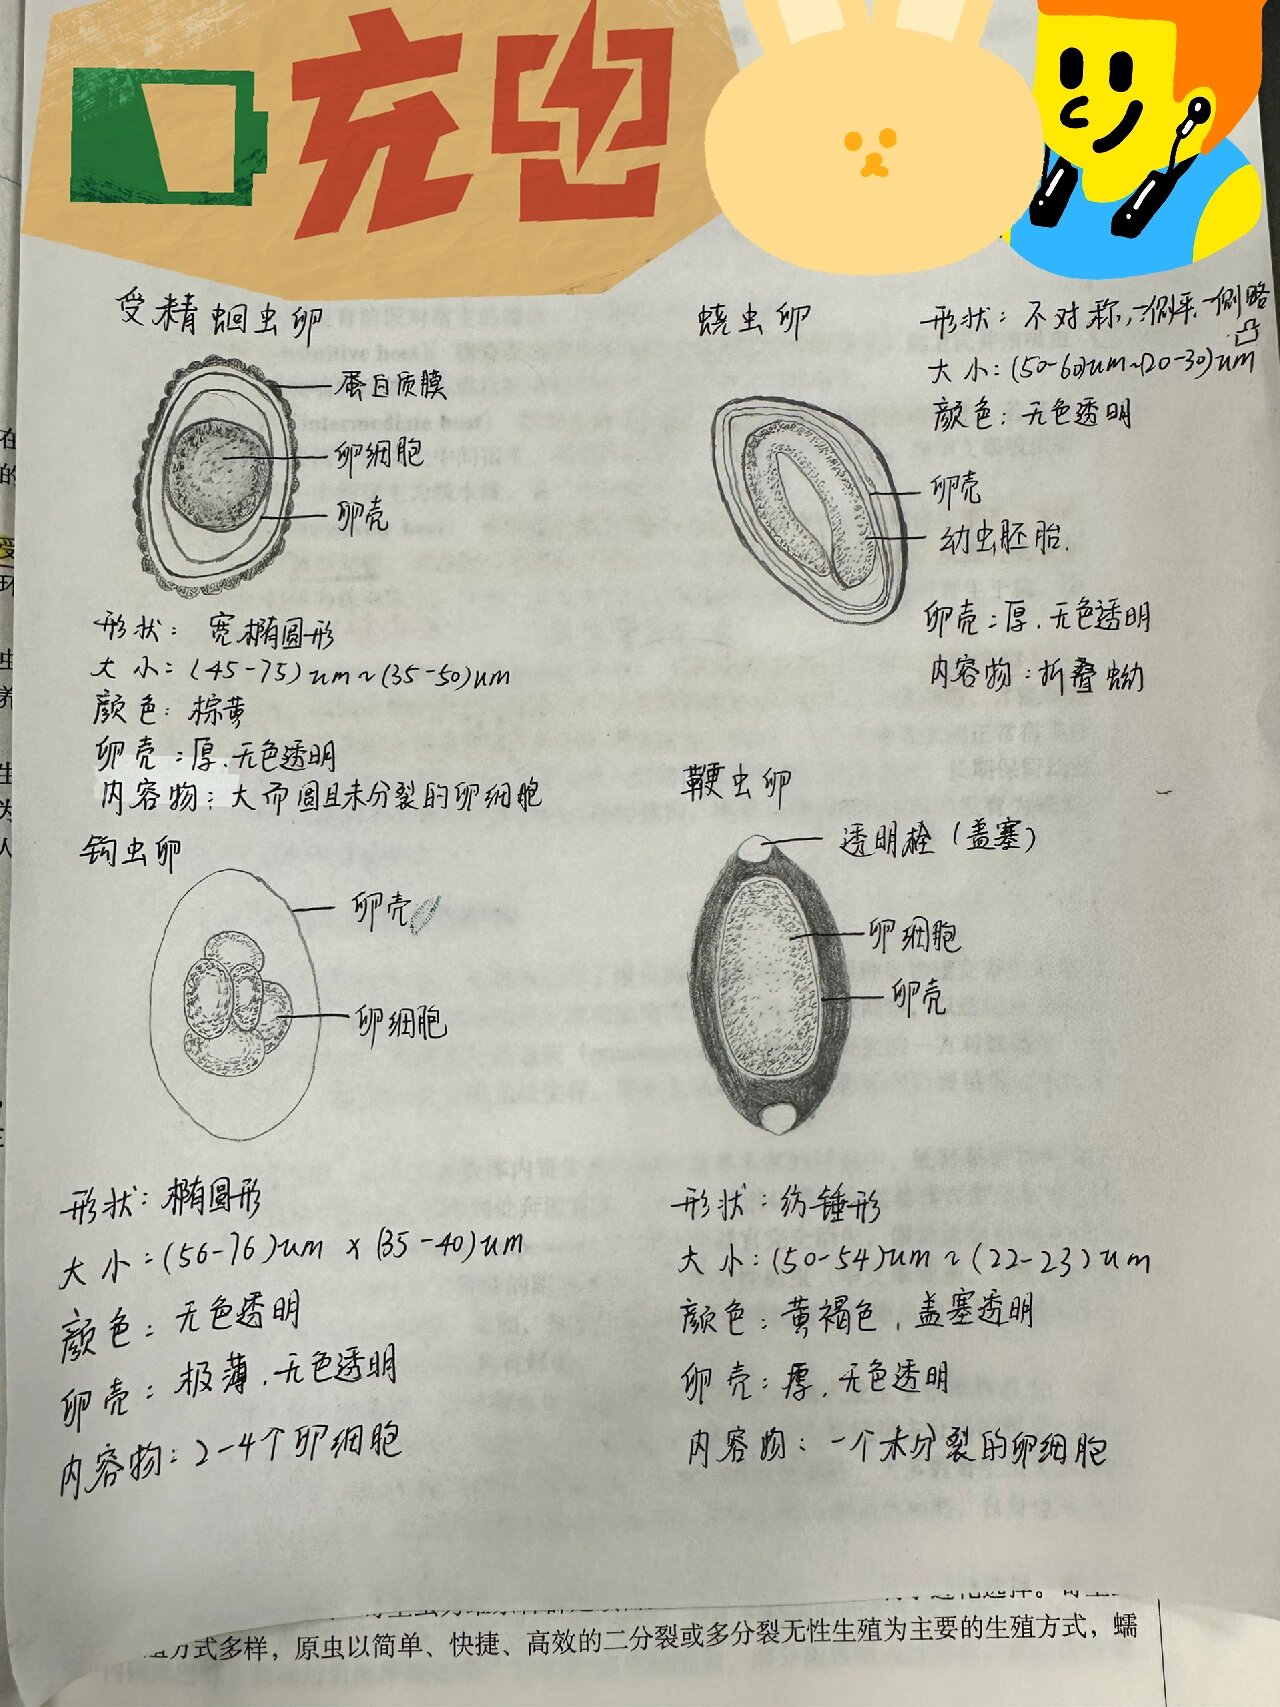 充电
受精蛔虫卵
蛋白质膜
卵细胞
卵壳
形状：宽椭圆形
大小：(45-75)um~(35-50)um
颜色：棕黄
卵壳：厚.无色透明
内容物：大而圆且未分裂的卵细胞
蛲虫卵
形状：不对称,一侧平一侧略凸
大小：(50-60)um~(20-30)um
颜色：无色透明
卵壳
幼虫胚胎.
卵壳：厚.无色透明
内容物：折叠蚴
钩虫卵
卵壳
卵细胞
形状：椭圆形
大小：(56-76)um×(35-40)um
颜色：无色透明
卵壳：极薄.无色透明
内容物：2-4个卵细胞
鞭虫卵
透明栓（盖塞）
卵细胞
卵壳
形状：纺锤形
大小：(50-54)um~(22-23)um
颜色：黄褐色.盖塞透明
卵壳：厚.无色透明
内容物：一个未分裂的卵细胞
方式多样，原虫以简单、快捷、高效的二分裂或多分裂无性生殖为主要的生殖方式，蠕